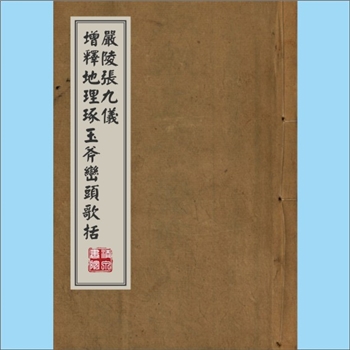 嚴陵張九儀
增釋地理琢玉斧巒頭歌括